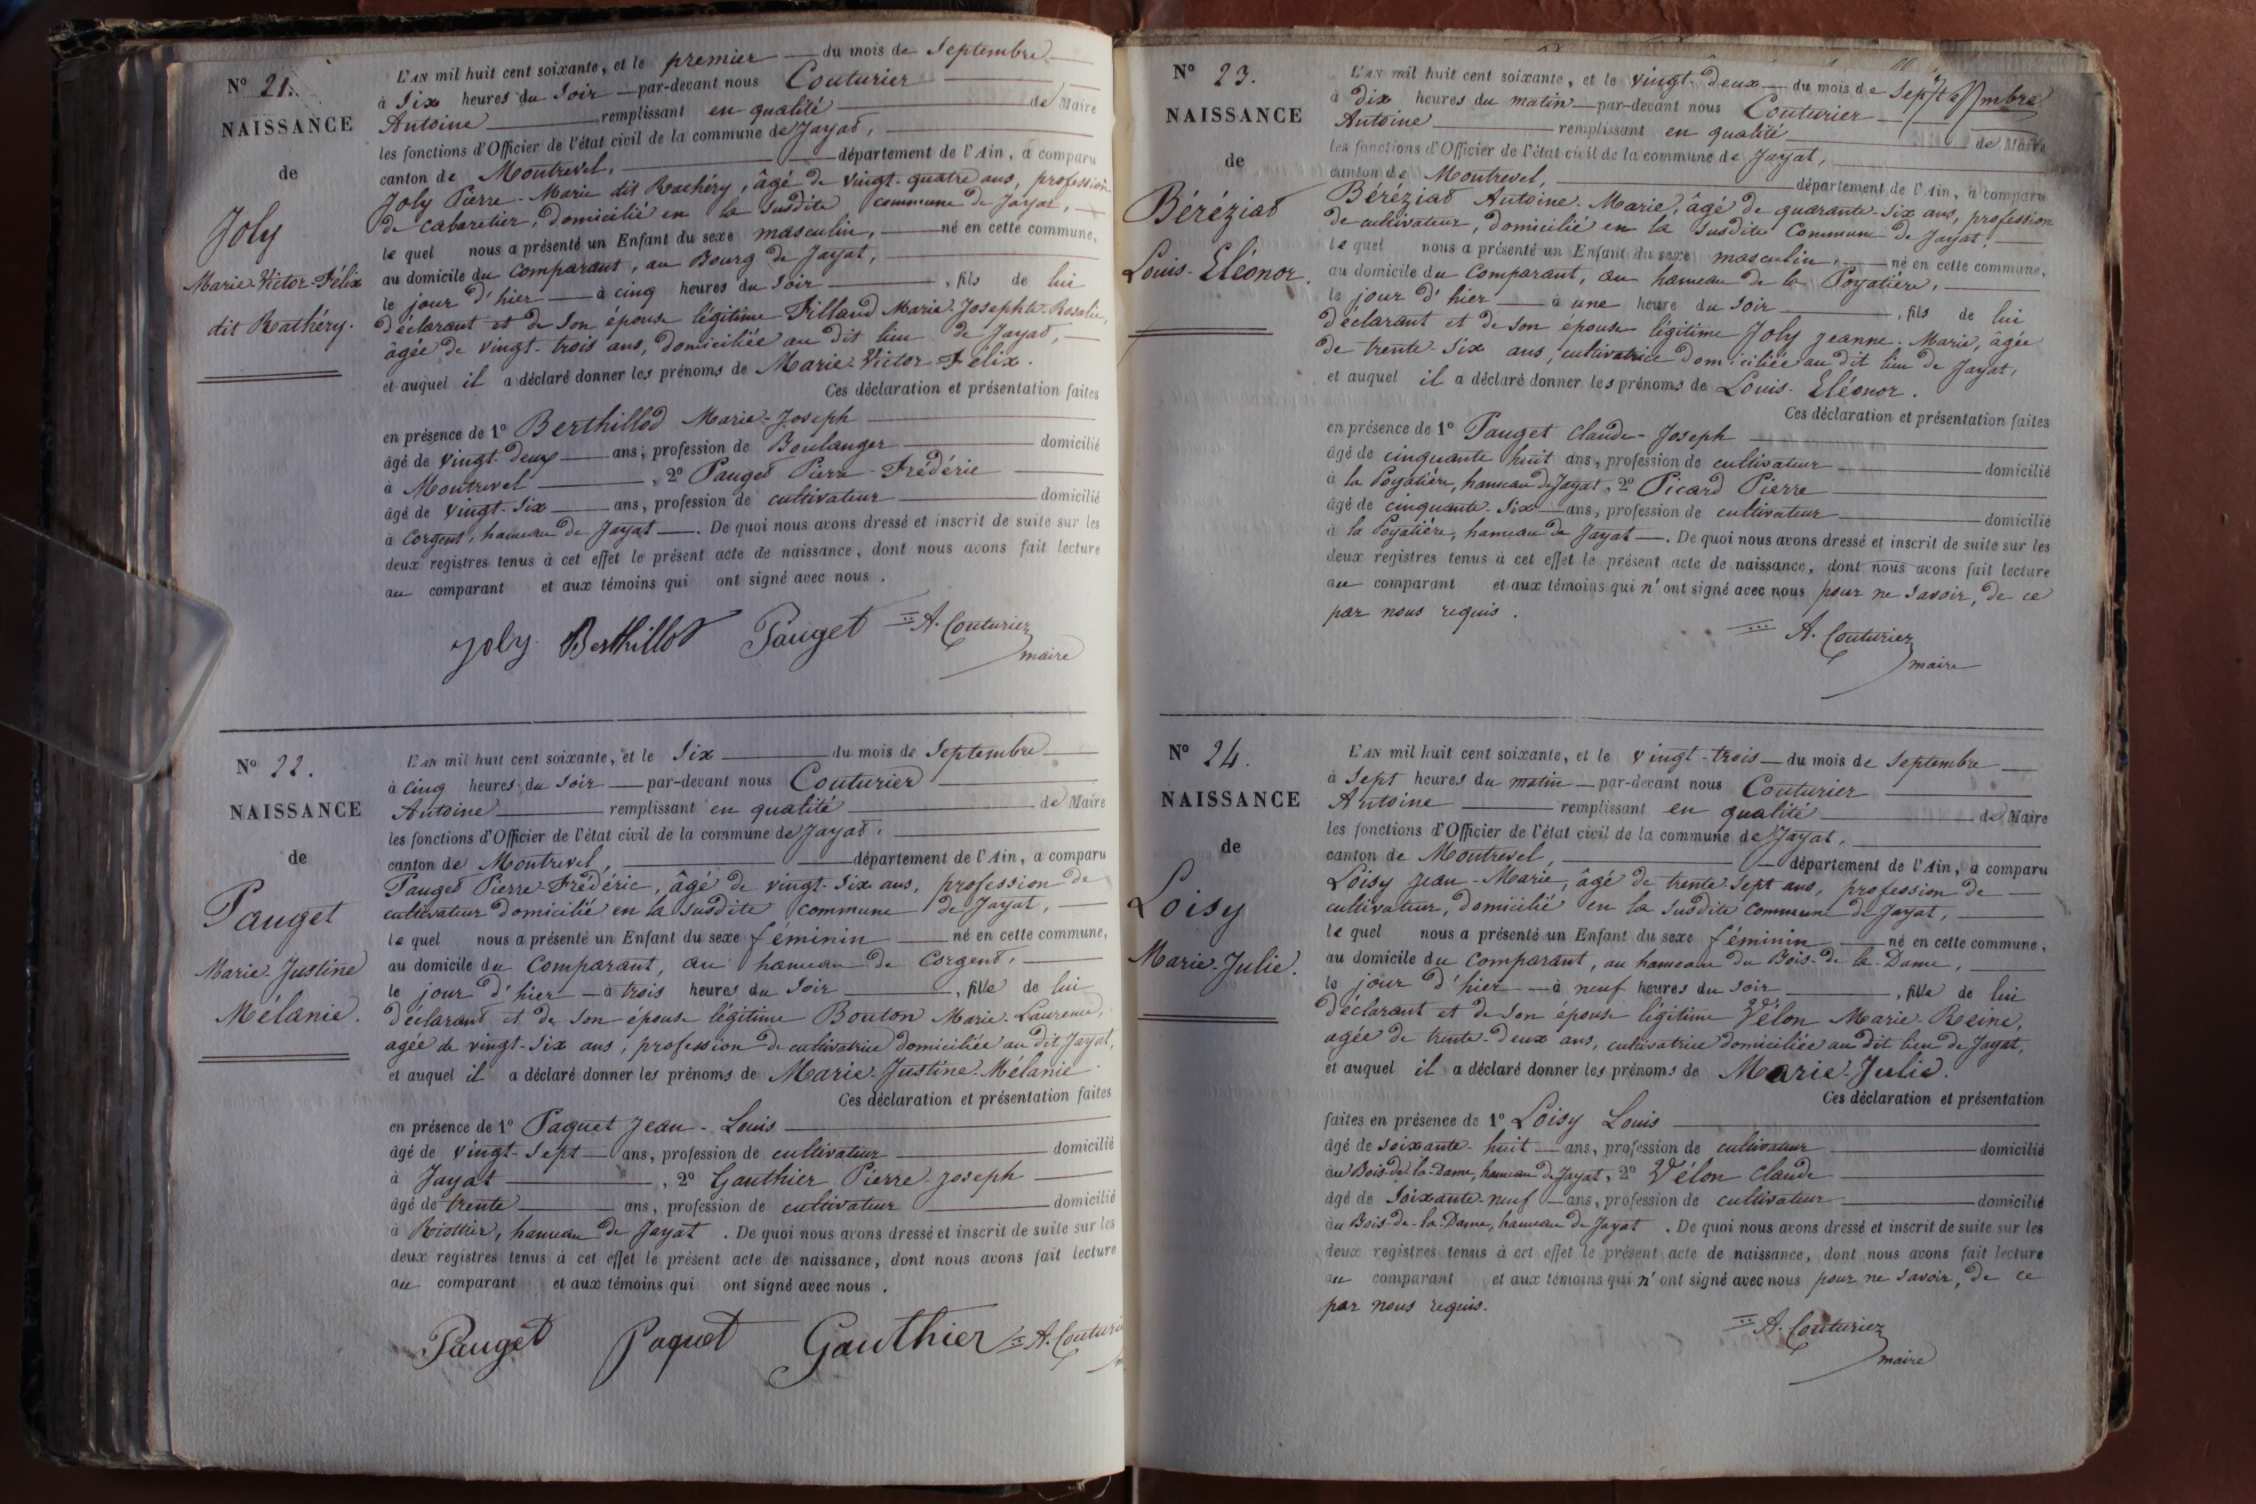 N° 21.
NAISSANCE
de
Joly
Marie-Victor-Félix
dit Rachéry.
L'AN mil huit cent soixante, et le premier du mois de Septembre
à Six heures du Soir par-devant nous Couturier
Antoine remplissant en qualité de Maire
les fonctions d'Officier de l'état civil de la commune de Jayat,
canton de Montrevel, département de l'Ain, a comparu
Joly Pierre-Marie dit Rachéry, âgé de vingt-quatre ans, profession
de cabaretier, domicilié en la susdite commune de Jayat,
lequel nous a présenté un Enfant du sexe masculin, né en cette commune,
au domicile du comparant, au Bourg de Jayat,
le jour d'hier à cinq heures du Soir, fils de lui
déclarant et de son épouse légitime Filland Marie-Josephte-Rosalie,
âgée de vingt-trois ans, domiciliée au dit lieu de Jayat,
et auquel il a déclaré donner les prénoms de Marie-Victor-Félix.
Ces déclaration et présentation faites
en présence de 1° Berthillod Marie-Joseph
âgé de vingt-deux ans, profession de Boulanger domicilié
à Montrevel, 2° Pauget Pierre-Frédéric
âgé de vingt-six ans, profession de cultivateur domicilié
à Corgent, hameau de Jayat. De quoi nous avons dressé et inscrit de suite sur les
deux registres tenus à cet effet le présent acte de naissance, dont nous avons fait lecture
au comparant et aux témoins qui ont signé avec nous.
Joly Berthillot Pauget A. Couturier
maire
N° 22.
NAISSANCE
de
Pauget
Marie-Justine
Mélanie.
L'AN mil huit cent soixante, et le Six du mois de Septembre
à cinq heures du Soir par-devant nous Couturier
Antoine remplissant en qualité de Maire
les fonctions d'Officier de l'état civil de la commune de Jayat,
canton de Montrevel, département de l'Ain, a comparu
Pauget Pierre-Frédéric, âgé de vingt-six ans, profession de
cultivateur domicilié en la susdite commune de Jayat,
lequel nous a présenté un Enfant du sexe féminin né en cette commune,
au domicile du Comparant, au hameau de Corgent,
le jour d'hier à trois heures du Soir, fille de lui
déclarant et de son épouse légitime Bouton Marie-Laurence,
agée de vingt-six ans, profession de cultivatrice domiciliée au dit Jayat,
et auquel il a déclaré donner les prénoms de Marie-Justine-Mélanie
Ces déclaration et présentation faites
en présence de 1° Paquet Jean-Louis
âgé de vingt-sept ans, profession de cultivateur domicilié
à Jayat, 2° Gauthier Pierre-Joseph
âgé de trente ans, profession de cultivateur domicilié
à Riottier, hameau de Jayat. De quoi nous avons dressé et inscrit de suite sur les
deux registres tenus à cet effet le présent acte de naissance, dont nous avons fait lecture
au comparant et aux témoins qui ont signé avec nous.
Pauget Paquet Gauthier A. Couturi
N° 23.
NAISSANCE
de
Béréziat
Louis-Eléonor.
L'AN mil huit cent soixante, et le vingt-deux du mois de Septembre
à dix heures du matin par-devant nous Couturier
Antoine remplissant en qualité de Maire
les fonctions d'Officier de l'état civil de la commune de Jayat,
canton de Montrevel, département de l'Ain, a comparu
Béréziat Antoine-Marie, âgé de quarante-six ans, profession
de cultivateur, domicilié en la susdite Commune de Jayat,
lequel nous a présenté un Enfant du sexe masculin, né en cette commune,
au domicile du Comparant, au hameau de la Poyatière,
le jour d'hier à une heure du Soir, fils de lui
déclarant et de son épouse légitime Joly Jeanne-Marie, âgée
de trente-six ans, cultivatrice domiciliée au dit lieu de Jayat,
et auquel il a déclaré donner les prénoms de Louis-Eléonor.
Ces déclaration et présentation faites
en présence de 1° Pauget Claude-Joseph
âgé de cinquante huit ans, profession de cultivateur domicilié
à la Poyatière, hameau de Jayat, 2° Picard Pierre
âgé de cinquante-six ans, profession de cultivateur domicilié
à la Poyatière, hameau de Jayat. De quoi nous avons dressé et inscrit de suite sur les
deux registres tenus à cet effet le présent acte de naissance, dont nous avons fait lecture
au comparant et aux témoins qui n'ont signé avec nous pour ne savoir, de ce
par nous requis.
A. Couturier
maire
N° 24.
NAISSANCE
de
Loisy
Marie-Julie.
L'AN mil huit cent soixante, et le vingt-trois du mois de Septembre
à Sept heures du matin par-devant nous Couturier
Antoine remplissant en qualité de Maire
les fonctions d'Officier de l'état civil de la commune de Jayat,
canton de Montrevel, département de l'Ain, a comparu
Loisy Jean-Marie, âgé de trente-sept ans, profession de
cultivateur, domicilié en la susdite commune de Jayat,
lequel nous a présenté un Enfant du sexe féminin né en cette commune,
au domicile du comparant, au hameau du Bois-de-la-Dame,
le jour d'hier à neuf heures du Soir, fille de lui
déclarant et de son épouse légitime Vélon Marie-Reine,
agée de trente-deux ans, cultivatrice domiciliée au dit lieu de Jayat,
et auquel il a déclaré donner les prénoms de Marie-Julie.
Ces déclaration et présentation
faites en présence de 1° Loisy Louis
âgé de soixante-huit ans, profession de cultivateur domicilié
au Bois-de-la-Dame, hameau de Jayat, 2° Vélon Claude
âgé de soixante-neuf ans, profession de cultivateur domicilié
au Bois-de-la-Dame, hameau de Jayat. De quoi nous avons dressé et inscrit de suite sur les
deux registres tenus à cet effet le présent acte de naissance, dont nous avons fait lecture
au comparant et aux témoins qui n'ont signé avec nous pour ne savoir, de ce
par nous requis.
A. Couturier
maire